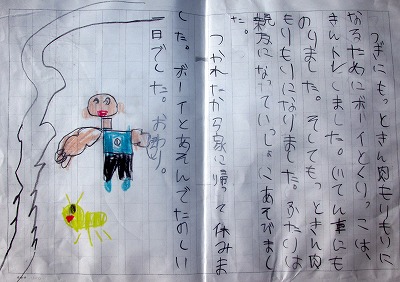 つぎにもっときん肉もりもりに
なるためにボーイとくりっこは、
きんトレしました。じてん車にも
のりました。そしてもっときん肉
もりもりになりました。ふたりは
親友になっていっしょにあそびまし
た。
つかれたから家に帰って休みま
した。ボーイとあそんでたのしい
日でした。おわり。